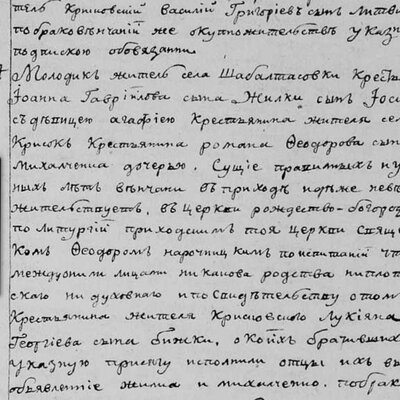 тель Кришовскій Василій Григоріевъ сынъ Литви
по браковѣнчаніи же окупножителствѣ указн
подпискою обовязанни
Молодикъ житель села Шабалтасовки Крест
Іоанна Гавріилова сына Жилки сынъ Іоси
съ дѣвицею агафіею Крестьянина жителя се
Крискъ Крестьянина романа Ѳеодорова сы
Михалченка дочерью. Сущіе правилныхъ и у
ныхъ лѣтъ вѣнчани въ приходѣ идѣже невѣ
жителствуетъ, въ церкви рождество-богород
по литургіи приходскимъ тоя церкви свяще
комъ Ѳеодоромъ нарочицкимъ по испитаній чт
междуоними лицами никакова родства ниплот
скаго ни духовнаго и по свидѣтелству о том
Крестьянина жителя Лукіяна
Георгіева сына бижки, о коихъ бравшихъ
указную присягу исполнили отцы ихъ
объявленніе жилка и михалченко. побрак